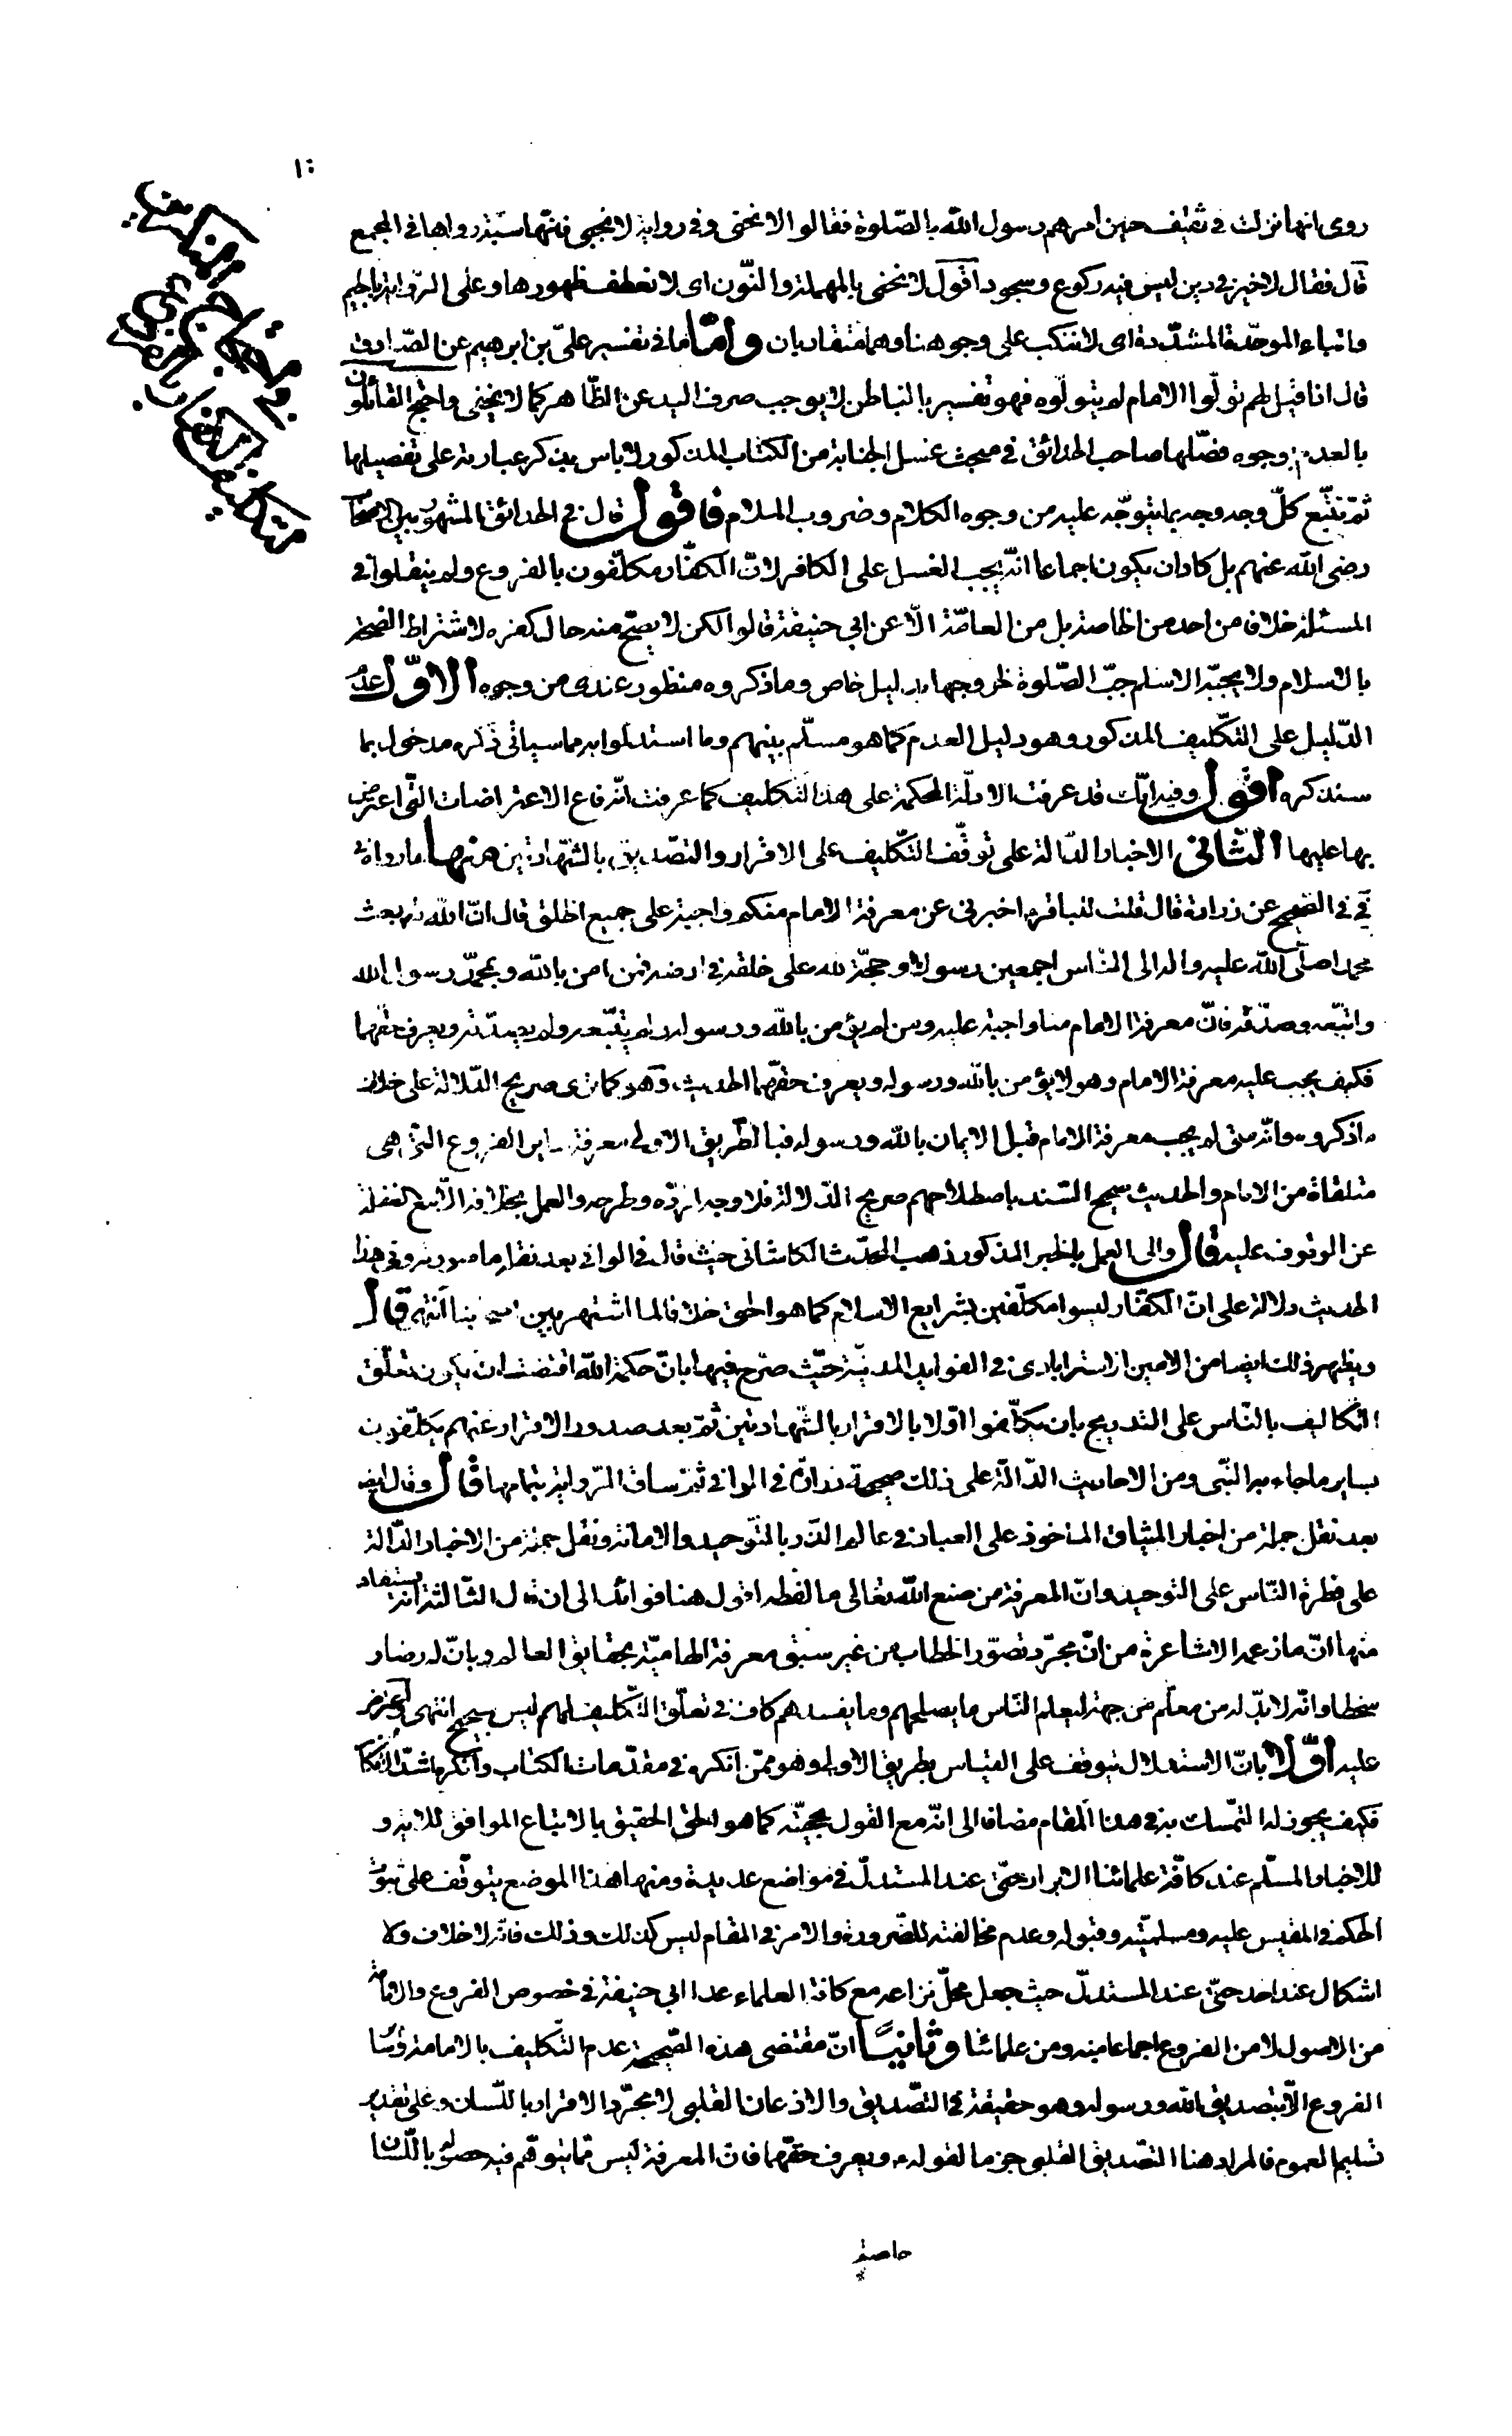 روى انها نزلت فى ثقيف حين امرهم رسول الله بالصّلوة فقالوا لا نحنى وفى رواية لا نجبى فانّها سبّة رواها فى المجمع
قال فقال لا خير فى دين ليس فيه ركوع وسجود اقول لا نحنى بالمهملة والنّون اى لا نعطف ظهورها وعلى الرّواية بالجيم
والباء الموحّدة المشدّدة اى لا ننكب على وجوهنا وهما متقاربان وامّا ما فى تفسير علىّ بن ابرهيم عن الصّادق
قال اذا قيل لهم تولّوا الامام لم يتولّوه فهو تفسير بالباطن لا يوجب صرف اليد عن الظّاهر كما لا يخفى واحتج القائلون
بالعدم بوجوه فصّلها صاحب الحدائق فى مبحث غسل الجنابة من الكتاب المذكور لا باس بذكر عبارته على تفصيلها
ثمّ نتبّع كلّ وجه وجه بما يتوجّه عليه من وجوه الكلام وضروب الملام فاقول قال فى الحدائق المشهور بين الاصحاب
رضى الله عنهم بل كاد ان يكون اجماعا انّه يجب الغسل على الكافر لانّ الكفّار مكلّفون بالفروع ولم ينقلوا فى
المسئلة خلافا من احد من الخاصة بل من العامّة الّا عن ابى حنيفة قالوا لكن لا يصحّ منه حال كفره لاشتراط الصّحة
بالاسلام ولا يجبّه الاسلام جبّ الصّلوة لخروجها بدليل خاص وما ذكروه منظور عندى من وجوه الاوّل عدم
الدّليل على التكّليف المذكور وهو دليل العدم كما هو مسلّم بينهم وما استدلّوا به مما سياتى ذكره مدخول بما
سنذكره اقول وفيه انّك قد عرفت الادلّة المحكمة على هذا التكليف كما عرفت اندفاع الاعتراضات التى اعترض
بها عليها الثّانى الاخبار الدّالة على توقّف التّكليف على الاقرار والتصّديق بالشّهادتين منها ما رواه فى
فى فى الصّحيح عن زرارة قال قلت للباقر اخبرنى عن معرفة الامام منكم واجبة على جميع الخلق قال انّ الله بعث
محمدا صلّى الله عليه واله الى النّاس اجمعين رسولا وحجّة لله على خلقه فى ارضه فمن امن بالله وبمحمّد رسول الله
واتبّعه وصدّقه فانّ معرفة الامام منا واجبة عليه ومن لم يؤمن بالله ورسوله ولم يتّبعه ولم يصدّقه ويعرف حقّهما
فكيف يجب عليه معرفة الامام وهو لا يؤمن بالله ورسوله ويعرف حقهّما الحديث وهو كما ترى صريح الدّلالة على خلاف
ما ذكروه وانّه متى لم يجب معرفة الامام قبل الايمان بالله ورسوله فبالطّريق الاولى معرفة ساير الفروع التى هى
متلقاة من الامام والحديث صحيح السّند باصطلاحهم صريح الدّلالة فلا وجه لردّه وطرحه والعمل بخلافه الّا مع الغفلة
عن الوقوف عليه قال والى العمل بالخبر المذكور ذهب المحدّث الكاشانى حيث قال فى الوافى بعد نقله ما صورته وفى هذا
الحديث دلالة على انّ الكفّار ليسوا مكلّفين بشرايع الاسلام كما هو الحق خلافا لما اشتهر بين اصحابنا انتهى قال
ويظهر ذلك ايضا من الامين الاسترابادى فى الفوايد المدنيّة حيث صرّح فيها بانّ حكمة الله اقتضت ان يكون تعلّق
التكاليف بالنّاس على التدريج بان يكلّفوا اوّلا بالاقرار بالشّهادتين ثمّ بعد صدور الاقرار عنهم يكلّفون
بساير ما جاء به النّبى ومن الاحاديث الدّالّة على ذلك صحيحة زرارة فى الوافى ثمّ ساق الرّواية بتمامها قال وقال ايضا
بعد نقل جملة من اخبار الميثاق الماخوذ على العباد فى عالم الذر بالتّوحيد والامامة ونقل جملة من الاخبار الدّالة
على فطرة النّاس على التوحيد وانّ المعرفة من صنع الله تعالى ما لفظه اقول هنا فوائد الى ان قال الثّالثة انّه يستفاد
منها انّ ما زعمه الاشاعرة من انّ مجرّد تصوّر الخطاب من غير سبق معرفة الهاميّة بحقايق العالم وبانّ له رضا و
سخطا وانّه لا بدّ له من معلّم من جهته ليعلم النّاس ما يصلحهم وما يفسدهم كاف فى تعلّق التّكليف بهم ليس بصحيح انتهى واعترض
عليه اوّلا بانّ الاستدلال يتوقف على القياس بطريق الاولى وهو ممّن انكره فى مقدّمات الكتاب وانكرها شدّ الانكار
فكيف يجوز له التمّسك به فى هذا المقام مضافا الى انّه مع القول بحجيّته كما هو الحق الحقيق بالاتباع الموافق للاية و
للاخبار المسلّم عند كافّة علمائنا الابرار حتّى عند المستدلّ فى مواضع عديدة ومنها هذا الموضع يتوقّف على ثبوت
الحكم فى المقيس عليه ومسلميّته وقبوله وعدم مخالفته للضّرورة والامر فى المقام ليس كذلك وذلك فانّه لا خلاف ولا
اشكال عند احد حتّى عند المستدلّ حيث جعل محلّ نزاعه مع كافة العلماء عدا ابى حنيفة فى خصوص الفروع والامامة
من الاصول لا من الفروع اجماعا منه ومن علمائنا وثانيًا انّ مقتضى هذه الصّحيحة عدم التّكليف بالامامة وسائر
الفروع الّا بتصديق الله ورسوله وهو حقيقة فى التصّديق والاذعان القلبى لا مجرّد الاقرار باللّسان وعلى تقدير
تسليم العموم فالمراد هنا التصّديق القلبى جزما لقوله ويعرف حقّهما فانّ المعرفة ليس ممّا يتوهّم فيه حصوله باللّسان
خاصة